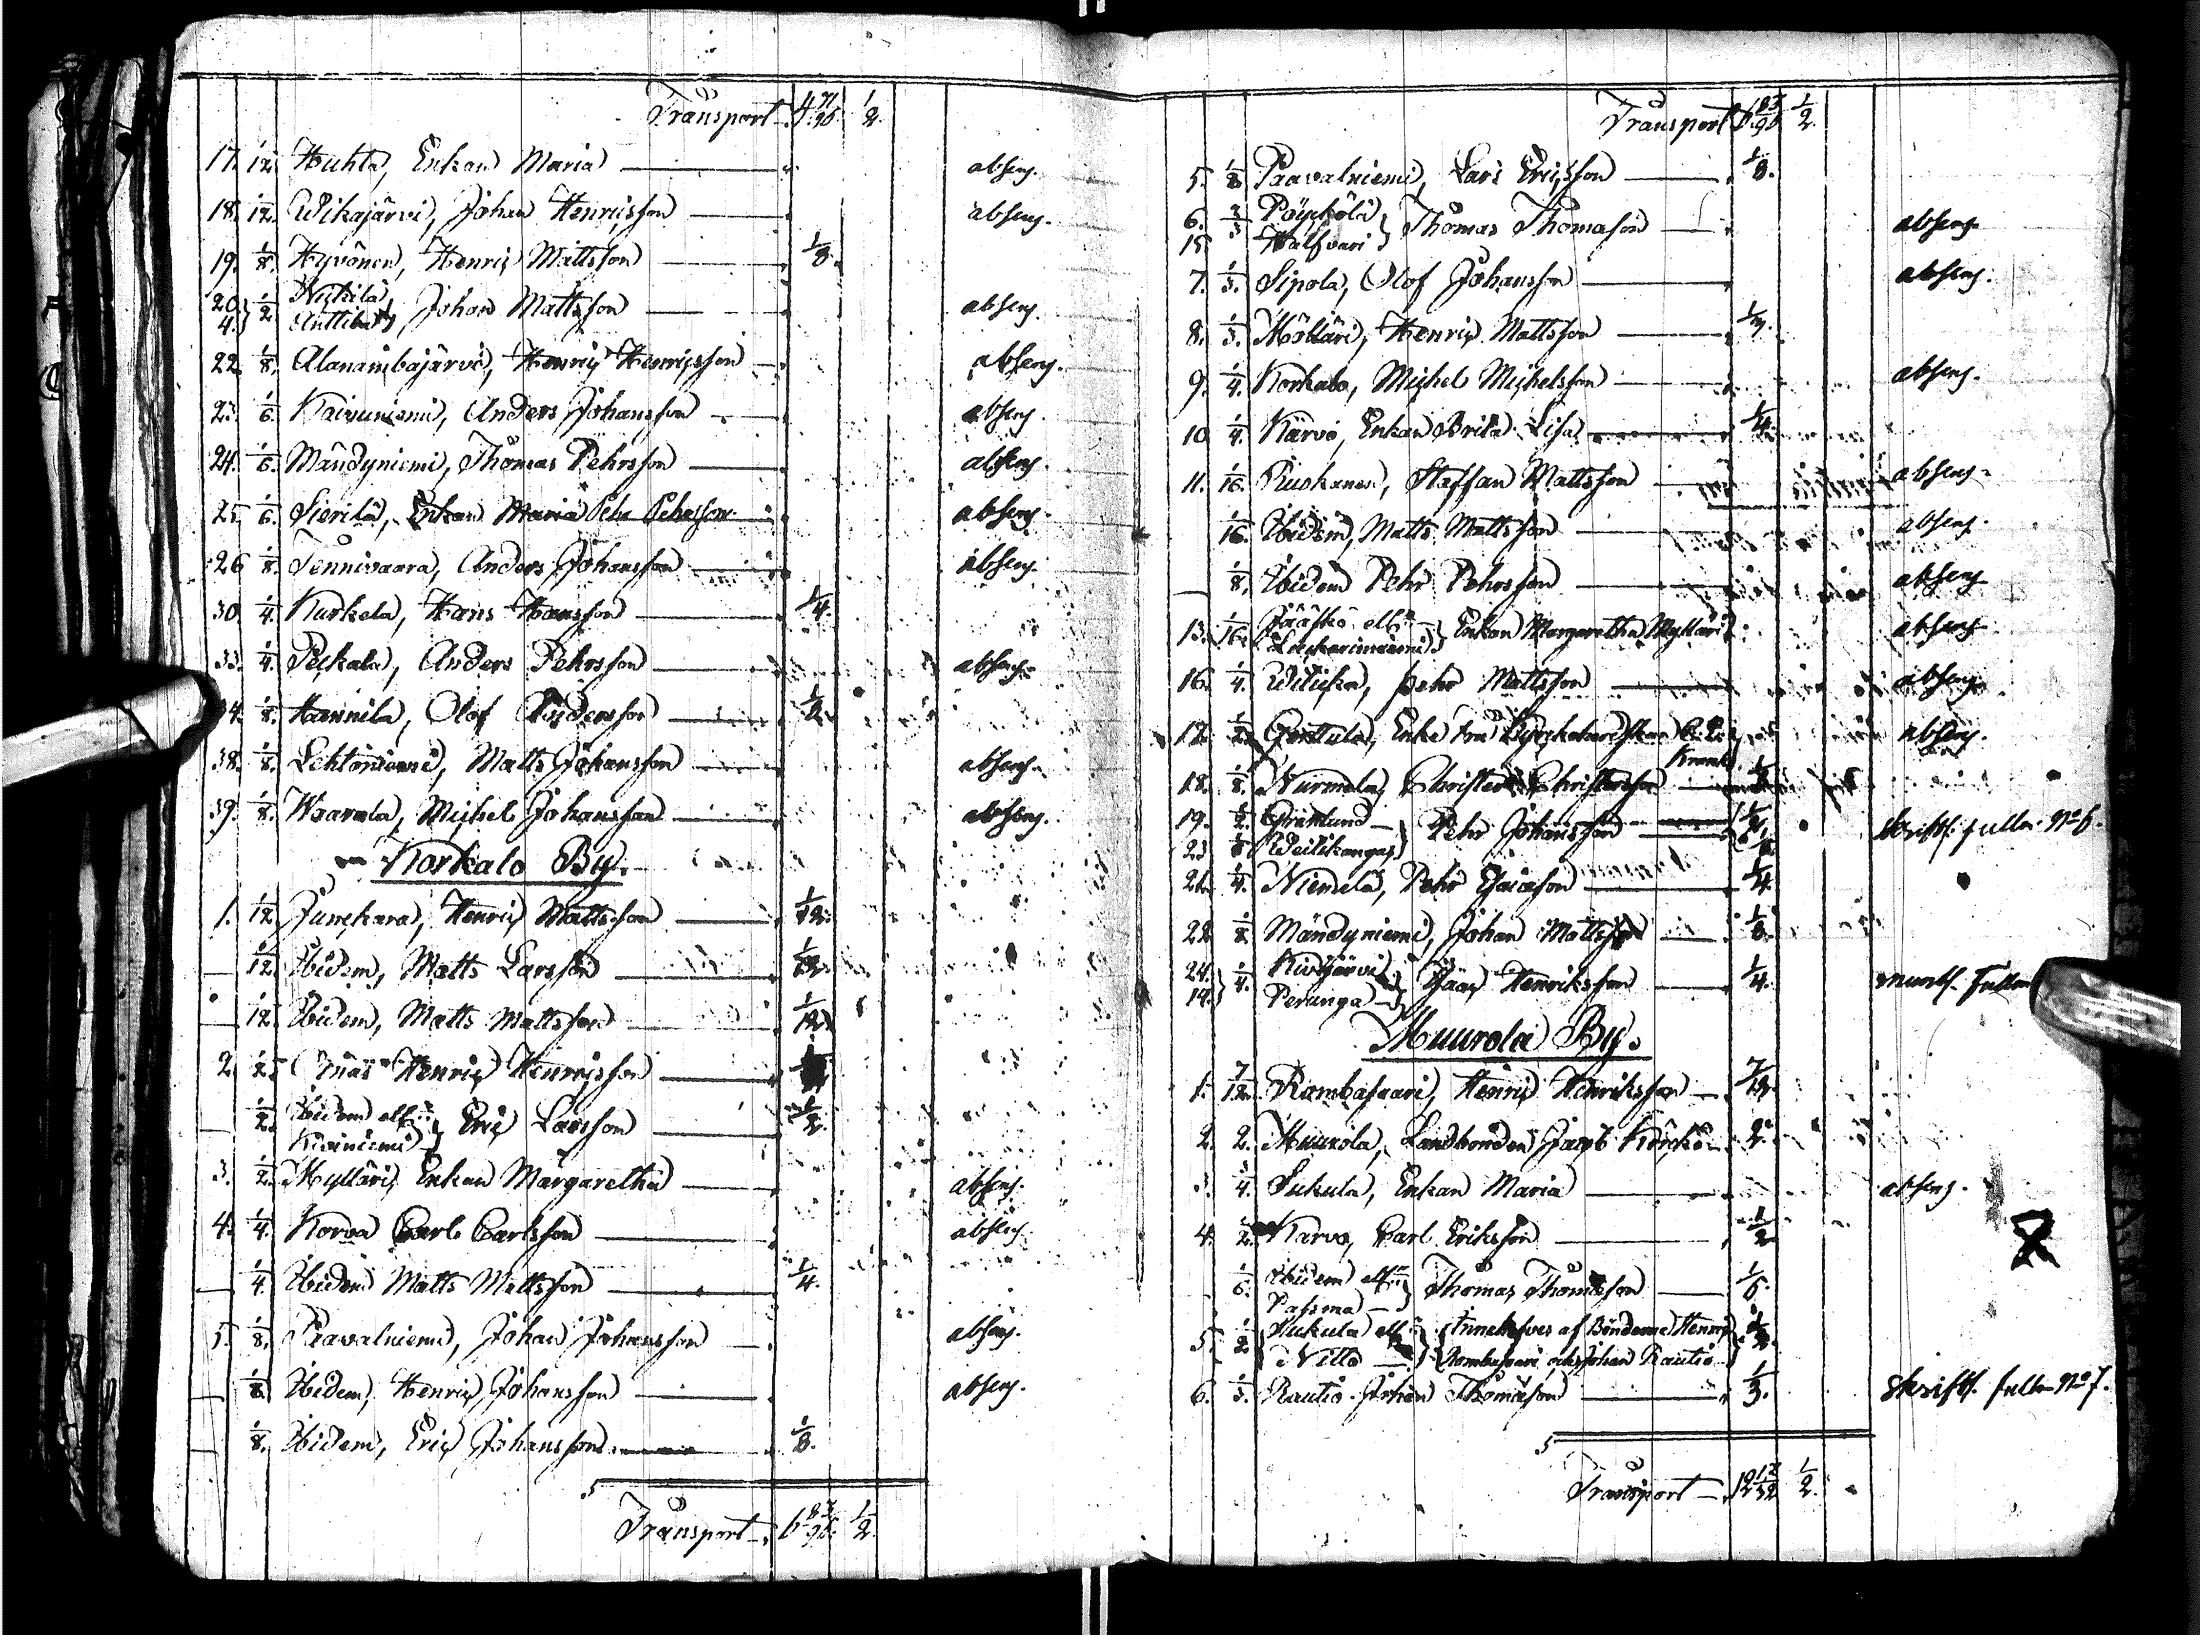 Transport 4 71/96 1/2
17. 1/12 Huhta, Enkan Maria absens.
18. 1/12 Wikajärvi, Johan Henricsson absens.
19. 1/8 Hyvönen, Henric Mattsson 1/8.
20. Nickilä
4. } 1/2 Anttila } Johan Mattsson absens.
22. 1/8. Alanambajärvi, Henric Henricsson absens.
23. 1/6. Kaivuniemi, Anders Johansson absens.
24. 1/6. Mändyniemi, Thomas Pehrsson absens.
25. 1/6. Sierilä, Enkan Maria Pehr Pehrsson absens.
26 1/8. Tennivaara, Anders Johansson absens.
30. 1/4. Kurkela, Hans Hansson 1/4.
33. 1/4. Peckala, Anders Pehrsson absens.
34. 1/8. Hannila, Olof Andersson
38. 1/8. Lehtoniemi, Matts Johansson absens.
39. 1/8. Waarala, Michel Johansson absens.
Korkalo By.
1. 1/12 Junckara, Henric Mattsson 1/12.
1/12. Ibidem, Matts Larsson 1/12.
1/12. Ibidem, Matts Mattsson 1/12.
2. 1/2. Henric Henricsson
1/2. Ibidem eller
Kiviniemi } Eric Larsson 1/2.
3. 1/2. Mylläri, Enkan Margaretha absens.
4. 1/4. Korva Carl Carlsson absens.
1/4. Ibidem Matts Mattsson 1/4.
5. 1/8. Paavalniemi, Johan Johansson absens.
1/8. Ibidem, Henric Johansson absens.
1/8. Ibidem, Eric Johansson 1/8.
Transport 6 83/96. 1/2.
Transport 6 83/96 1/2.
5. 1/8 Paavalniemi, Lars Ericsson 1/8.
6. Pöyckölä
15 Halfvari } Thomas Thomasson absens.
7. 1/3. Sipola, Olof Johansson absens.
8. 1/3. Mölläri, Henric Mattsson
9. 1/4. Korkalo, Michel Michelsson absens.
10. 1/4. Kärvö, Enkan Brita Lisa 1/4.
11. 1/16. Ruokanen, Staffan Mattsson absens.
1/16. Ibidem, Matts Mattsson absens.
1/8. Ibidem Pehr Pehrsson absens.
13. 1/16. Jääskö eller
} Enkan Margaretha Mylläri absens.
16. 1/4. Pehr Mattsson absens.
17. Enke absens.
18. 1/8. Nurmela, Christer Christersson
19. 1/2. Grönlund
23 1/8 } Pehr Johansson skriftl. fullm. No 6.
21. 1/4. Niemelä, Pehr Esaiasson 1/4.
22. 1/8 Mändyniemi, Johan Mattsson 1/8.
24. Kivijärvi
14. } 1/4. Perunga } Isaac Henriksson 1/4. muntl. fullm
Muurola By.
1. 7/12. Rambasaari, Henric Henriksson 7/12.
2. 2. Muurola, Landbonden Jacob Körckö 2.
3. 1/4. Sukula, Enkan Maria absens.
4. 1/2. Karvo, Carl Eriksson 1/2
1/6. Ibidem eller
Passma } Thomas Thomasson 1/6.
5. 1/2 Sukula eller } Innehafves af Bönderne Henric
Nillo } Rambasaari och Johan Rautio
6. 1/3. Rautio Johan Thomasson 1/3. Skriftl. fullm No 7.
Transport 12 1/2.